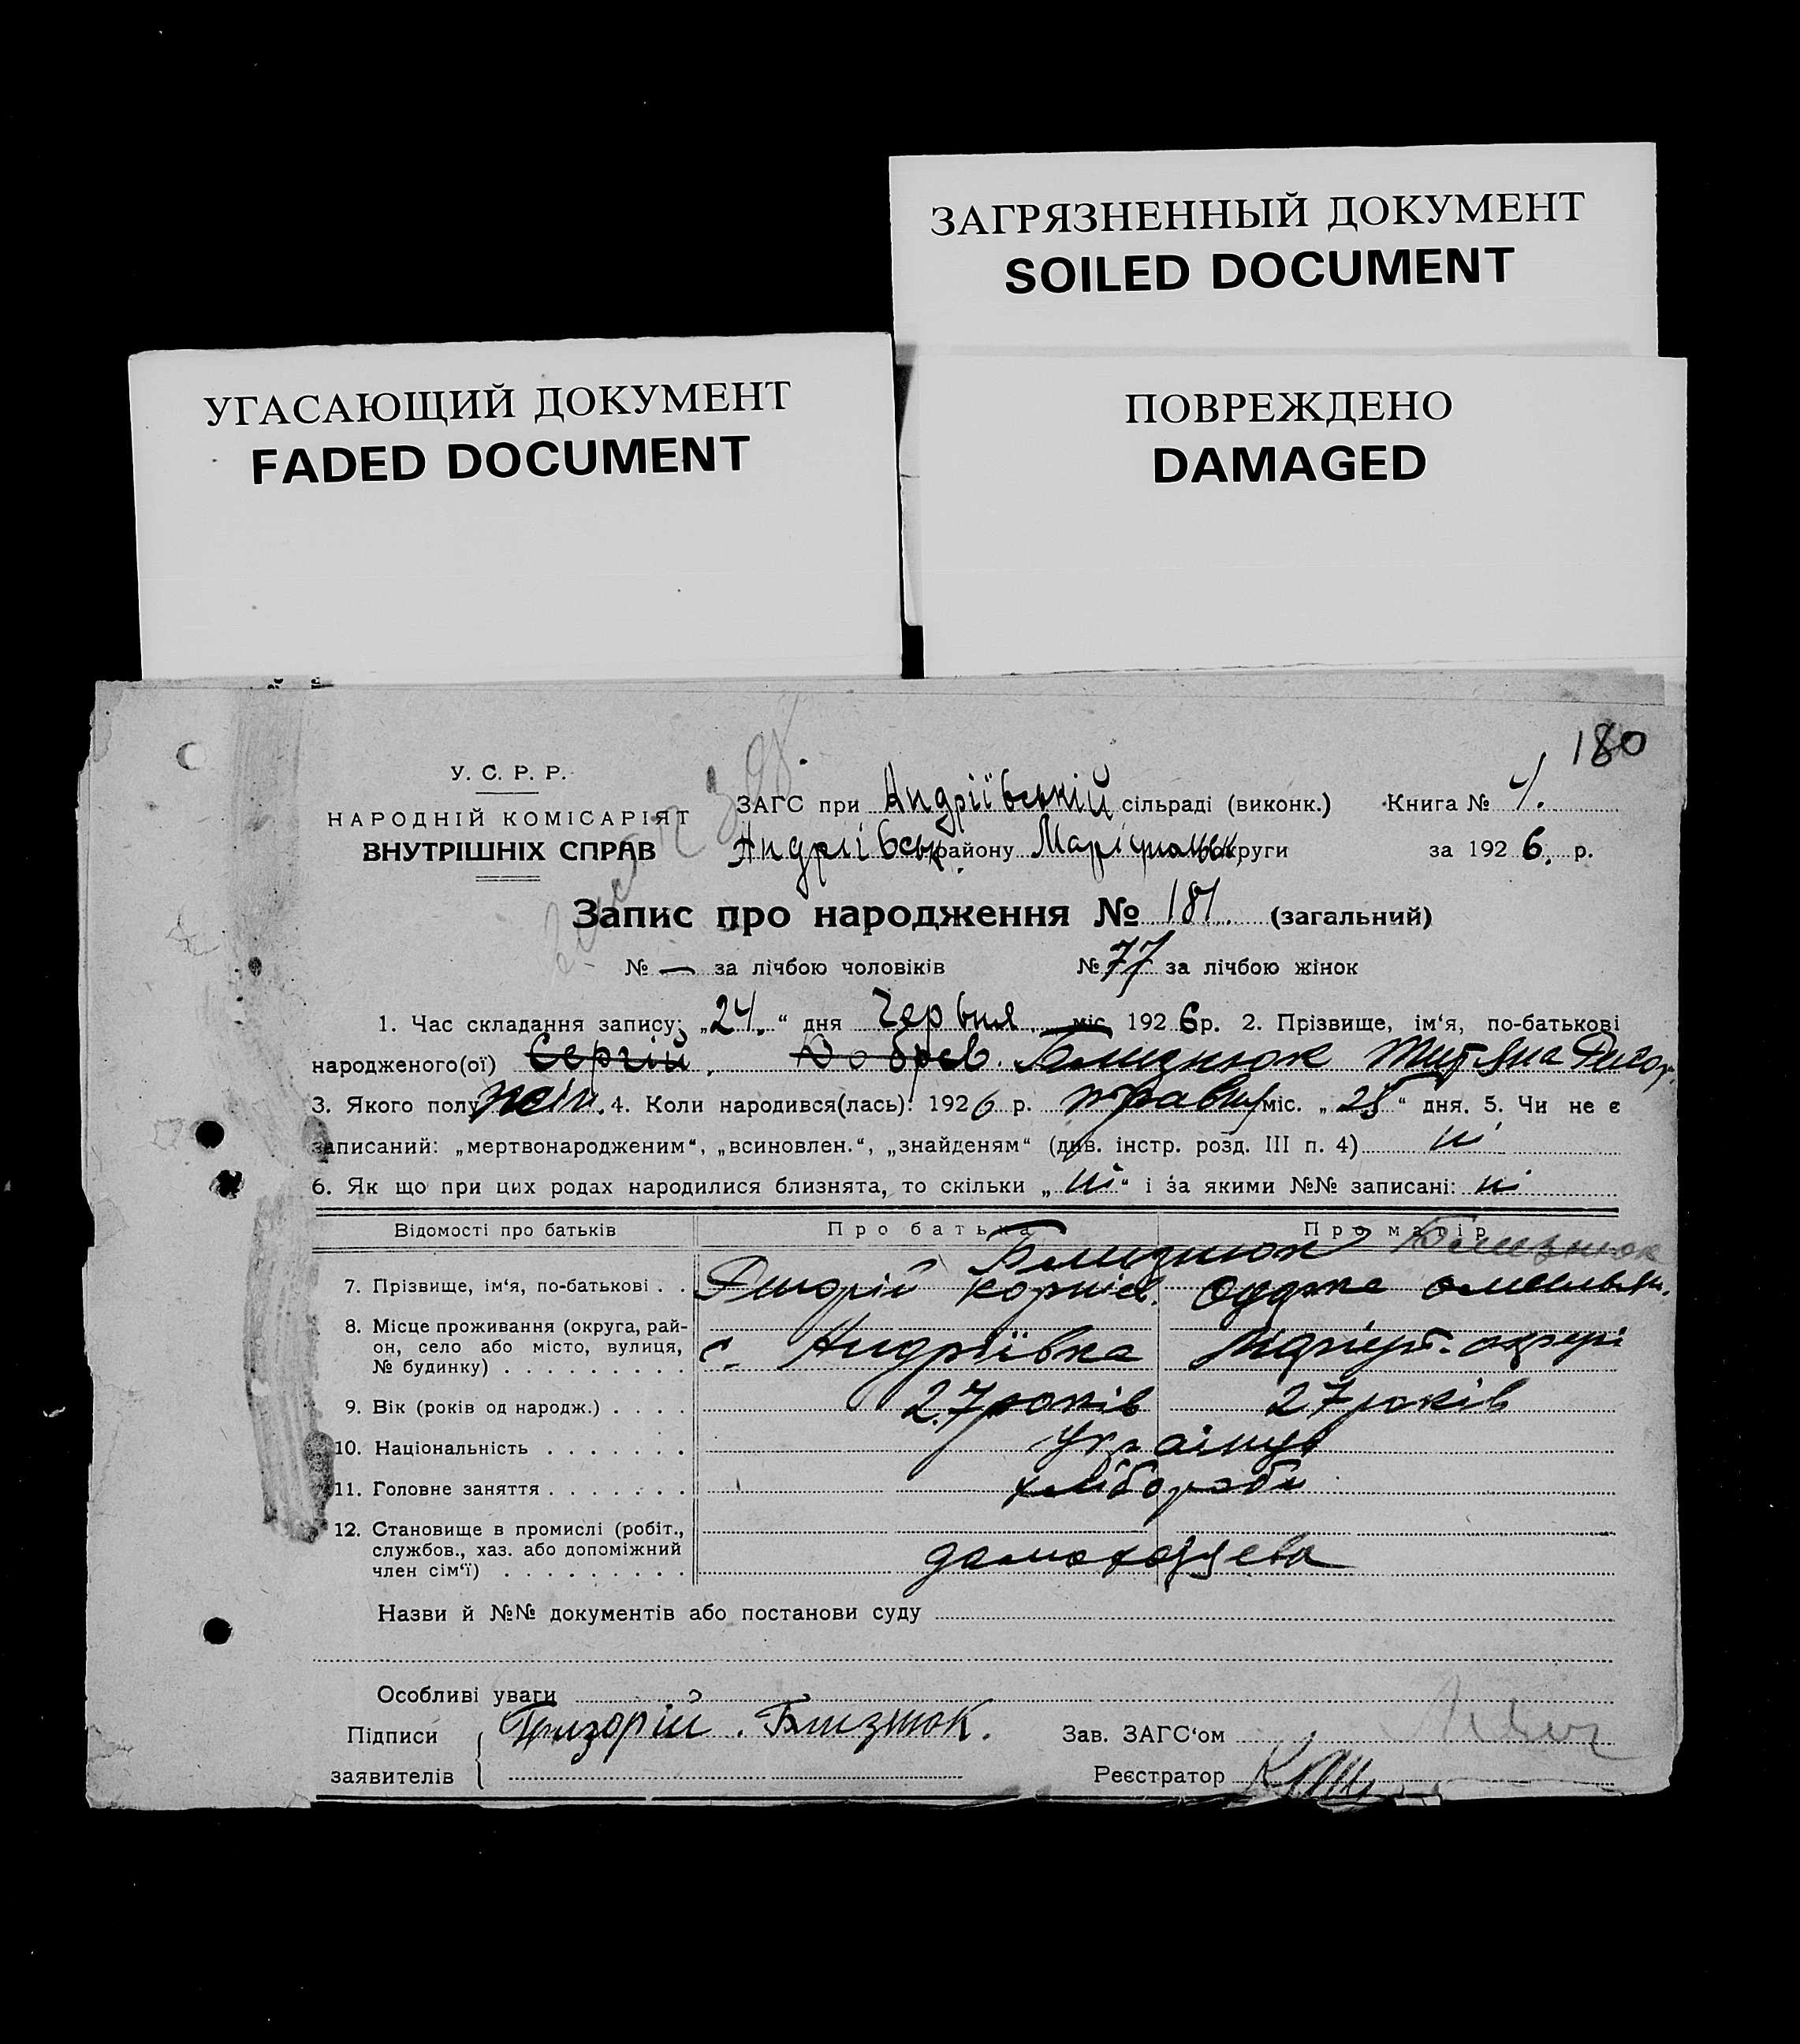 ЗАГРЯЗНЕННЫЙ ДОКУМЕНТ
SOILED DOCUMENT
УГАСАЮЩИЙ ДОКУМЕНТ
FADED DOCUMENT
ПОВРЕЖДЕНО
DAMAGED
180
У. С. Р. Р.
НАРОДНІЙ КОМІСАРІЯТ
ВНУТРІШНІХ СПРАВ
ЗАГС при Андріївській сільраді (виконк.) Книга №
Андріївськ. району Маріюпольськ. округи за 1926. р.
Запис про народження № 181. (загальний)
№ — за лічбою чоловіків № 77 за лічбою жінок
1. Час складання запису: „24.“ дня Червня міс. 1926 р. 2. Прізвище, ім‘я, по-батькові
народженого(ої) Сергій. Добрев. Близнюк
3. Якого полу жін. 4. Коли народився(лась): 1926 р. травня міс. „25“ дня. 5. Чи не є
записаний: „мертвонародженим“, „всиновлен.“, „знайденям“ (див. інстр. розд. III п. 4) ні
6. Як що при цих родах народилися близнята, то скільки „ні“ і за якими №№ записані: ні
Відомості про батьків Про батька Про матір
Близнюк Близнюк
7. Прізвище, ім‘я, по-батькові . . Корнієв.
8. Місце проживання (округа, рай-
он, село або місто, вулиця,
№ будинку) . . . . . . . . . с. Андріївка
9. Вік (років од народж.) . . . . 27 років 27 років
10. Національність . . . . . . . українці
11. Головне заняття . . . . . . . хлібороби
12. Становище в промислі (робіт.,
службов., хаз. або допоміжний
член сім‘ї) . . . . . . . . .
Назви й №№ документів або постанови суду
Особливі уваги
Підписи Григорій. Близнюк. Зав. ЗАГС‘ом
заявителів Реєстратор